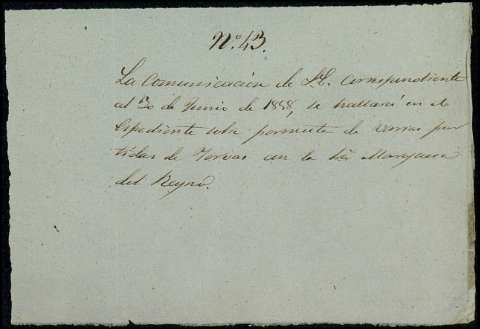 Nº. 43.
La comunicación de S.E. correspondiente
al 30 de Junio de 1858, se hallará en el
Espediente sobre permuta de varias par
tidas de con la Sª. Marquesa
del Reyno.